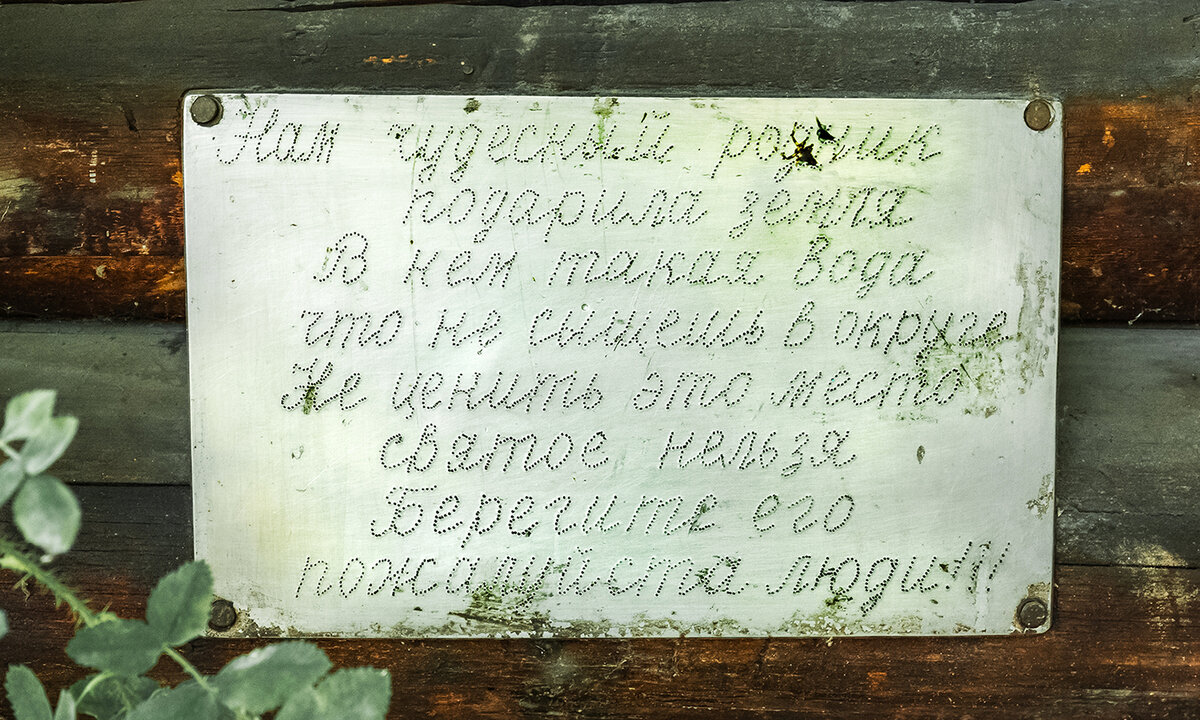 Нам чудесный родник
подарила земля
В нем такая вода
что не сыщешь в округе
Не ценить это место
святое нельзя
Берегите его
пожалуйста люди!!!